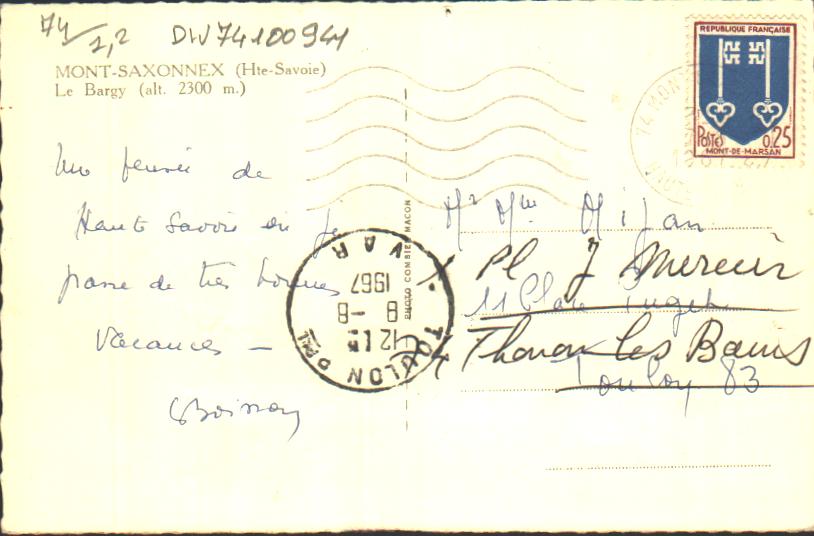 74/2,2 DW74100941
MONT-SAXONNEX (Hte-Savoie)
Le Bargy (alt. 2300 m.)
Une pensée de
Haute Savoie où je
passe de très bonnes
Vacances —
REPUBLIQUE FRANÇAISE
POSTES 0,25
MONT-DE-MARSAN
PHOTO COMBIER MACON
TOULON PPAL
12 H
8 -8
1967
VAR
Mr Mme
Pl J Mercier
11 Place Puget
74 Thonon les Bains
Toulon 83